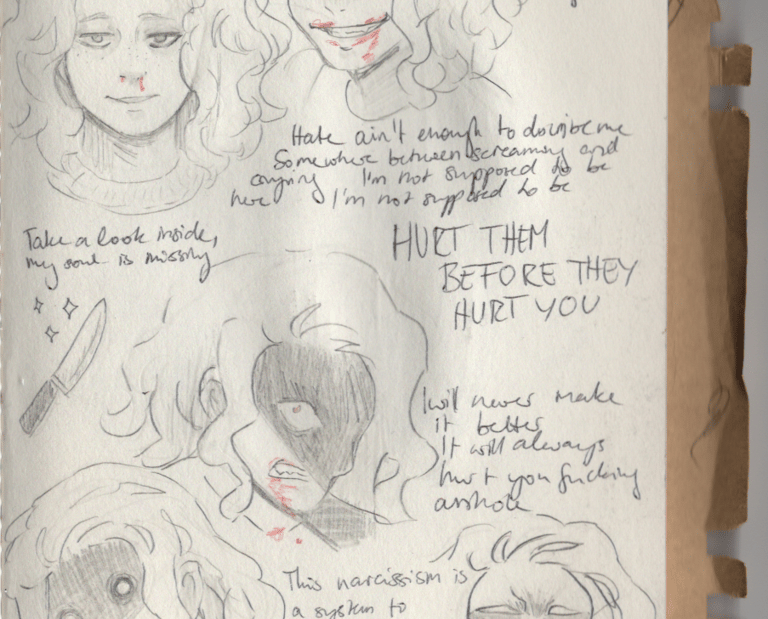 Hate ain't enough to describe me
Somewhere between screaming and
crying I'm not supposed to be
here I'm not supposed to be
Take a look inside,
my soul is missing
HURT THEM
BEFORE THEY
HURT YOU
I will never make
it better
It will always
hurt you fucking
asshole
This narcissism is
a system to